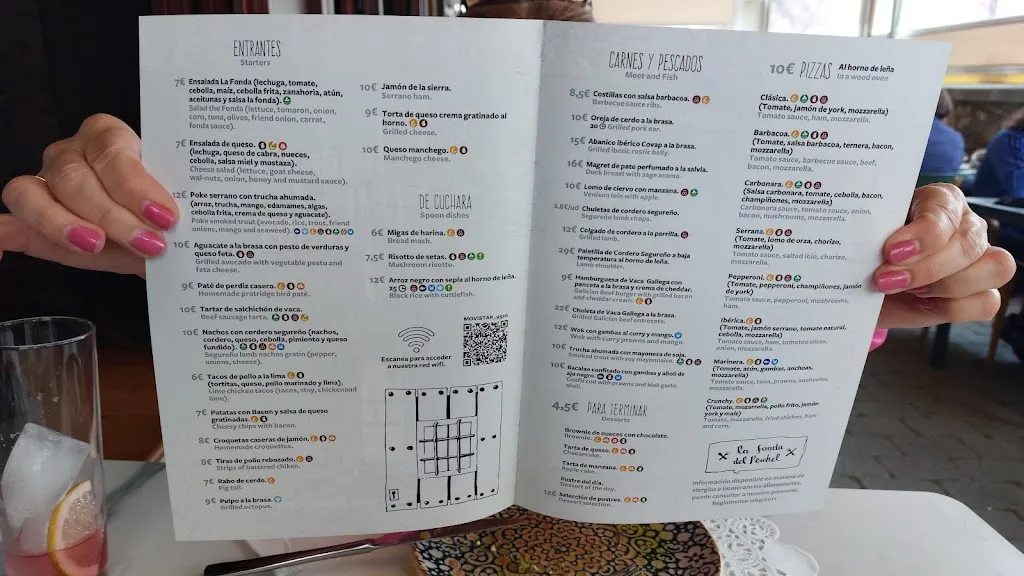 ENTRANTES
Starters
7€ Ensalada La Fonda (lechuga, tomate,
cebolla, maíz, cebolla frita, zanahoria, atún,
aceitunas y salsa la fonda).
Salad the Fonda (lettuce, tomaron, onion,
corn, tuna, olives, friend onion, carrot,
fonda sauce).
7€ Ensalada de queso.
(lechuga, queso de cabra, nueces,
cebolla, salsa miel y mostaza).
Cheese salad (lettuce, goat cheese,
wal-nuts, onion, honey and mustard sauce).
12€ Poke serrano con trucha ahumada.
(arroz, trucha, mango, edamames, algas,
cebolla frita, crema de queso y aguacate).
Poke smoked trout (avocado, rice, trout, friend
onions, mango and seaweed).
10€ Aguacate a la brasa con pesto de verduras y
queso feta.
Grilled avocado with vegetable pesto and
feta cheese.
9€ Paté de perdiz casero.
Homemade pratridge bird paté.
10€ Tartar de salchichón de vaca.
Beef sausage tarta.
10€ Nachos con cordero segureño (nachos,
cordero, queso, cebolla, pimiento y queso
fundido).
Segureño lamb nachos gratin (pepper,
onions, cheese).
6€ Tacos de pollo a la lima
(tortitas, queso, pollo marinado y lima).
Lime chicken tacos (tacos, stay, chicken and
lime).
7€ Patatas con Bacon y salsa de queso
gratinadas.
Cheesy chips with bacon.
8€ Croquetas caseras de jamón.
Homemade croquettes.
8€ Tiras de pollo rebozado.
Strips of battered chiken.
7€ Rabo de cerdo.
Pig tail.
9€ Pulpo a la brasa.
Grilled octopus.
10€ Jamón de la sierra.
Serrano ham.
9€ Torta de queso crema gratinado al
horno.
Grilled cheese.
10€ Queso manchego.
Manchego cheese.
DE CUCHARA
Spoon dishes
6€ Migas de harina.
Bread mash.
7,5€ Risotto de setas.
Mushroom risotto.
12€ Arroz negro con sepia al horno de leña.
25
Black rice with cuttlefish.
MOVISTAR_9510
Escanea para acceder
a nuestra red wifi.
CARNES Y PESCADOS
Meet and Fish
8,5€ Costillas con salsa barbacoa.
Barbecue sauce ribs.
10€ Oreja de cerdo a la brasa.
20 Grilled pork ear.
15€ Abanico ibérico Covap a la brasa.
Grilled iberic rustic belly.
16€ Magret de pato perfumado a la salvia.
Duck breast with sage aroma.
10€ Lomo de ciervo con manzana.
Venison loin with apple.
2,8€/ud Chuletas de cordero segureño.
Segureño lamb chops.
12€ Colgado de cordero a la parrilla.
Grilled lamb.
29€ Paletilla de Cordero Segureño a baja
temperatura al horno de leña.
Lamb shoulder.
9€ Hamburguesa de Vaca Gallega con
panceta a la brasa y crema de cheddar.
Galician beef burger with grilled bacon
and cheddar cream.
22€ Chuleta de Vaca Gallega a la brasa.
Grilled Galician beef entrecote.
12€ Wok con gambas al curry y mango.
Wok with curry prawns and mango.
10€ Trucha ahumada con mayonesa de soja.
Smoked trout with soy mayonnaise.
10€ Bacalao confitado con gambas y alioli de
ajo negro.
Confit cod with prawns and blak garlic
alioli.
4,5€ PARA TERMINAR
Desserts
Brownie de nueces con chocolate.
Brownie.
Tarta de queso.
Cheesecake.
Tarta de manzana.
Apple cake.
Postre del día.
Dessert of the day.
12€ Selección de postres.
Dessert selection.
10€ PIZZAS Al horno de leña
In a wood oven
Clásica.
(Tomate, jamón de york, mozzarella)
Tomato sauce, ham, mozzarella.
Barbacoa.
(Tomate, salsa barbacoa, ternera, bacon,
mozzarella)
Tomato sauce, barbecue sauce, beef,
bacon, mozzarella.
Carbonara.
(Salsa carbonara, tomate, cebolla, bacon,
champiñones, mozarela)
Carbonara sauce, tomato sauce, onion,
bacon, mushrooms, mozarella.
Serrana.
(Tomate, lomo de orza, chorizo,
mozzarella)
Tomato sauce, salted loin, chorizo,
mozzarella.
Pepperoni.
(Tomate, pepperoni, champiñones, jamón
de york)
Tomato sauce, pepperoni, mushrooms,
ham.
Ibérica.
(Tomate, jamón serrano, tomate natural,
cebolla, mozzarella)
Tomato sauce, ham, tomatoe slices,
onion, mozzarella.
Marinera.
(Tomate, atún, gambas, anchoas,
mozzarella)
Tomato sauce, tuna, prawns, anchovies,
mozzarella.
Crunchy.
(Tomate, mozzarella, pollo frito, jamón
york y maíz)
Tomato, mozzarella, fried chicken, ham
and corn.
la fonda
del Penhel
Información disponible en materia de
alergias e intolerancias alimentarias,
puede consultar a nuestro personal.
Reglamento 1169/2011